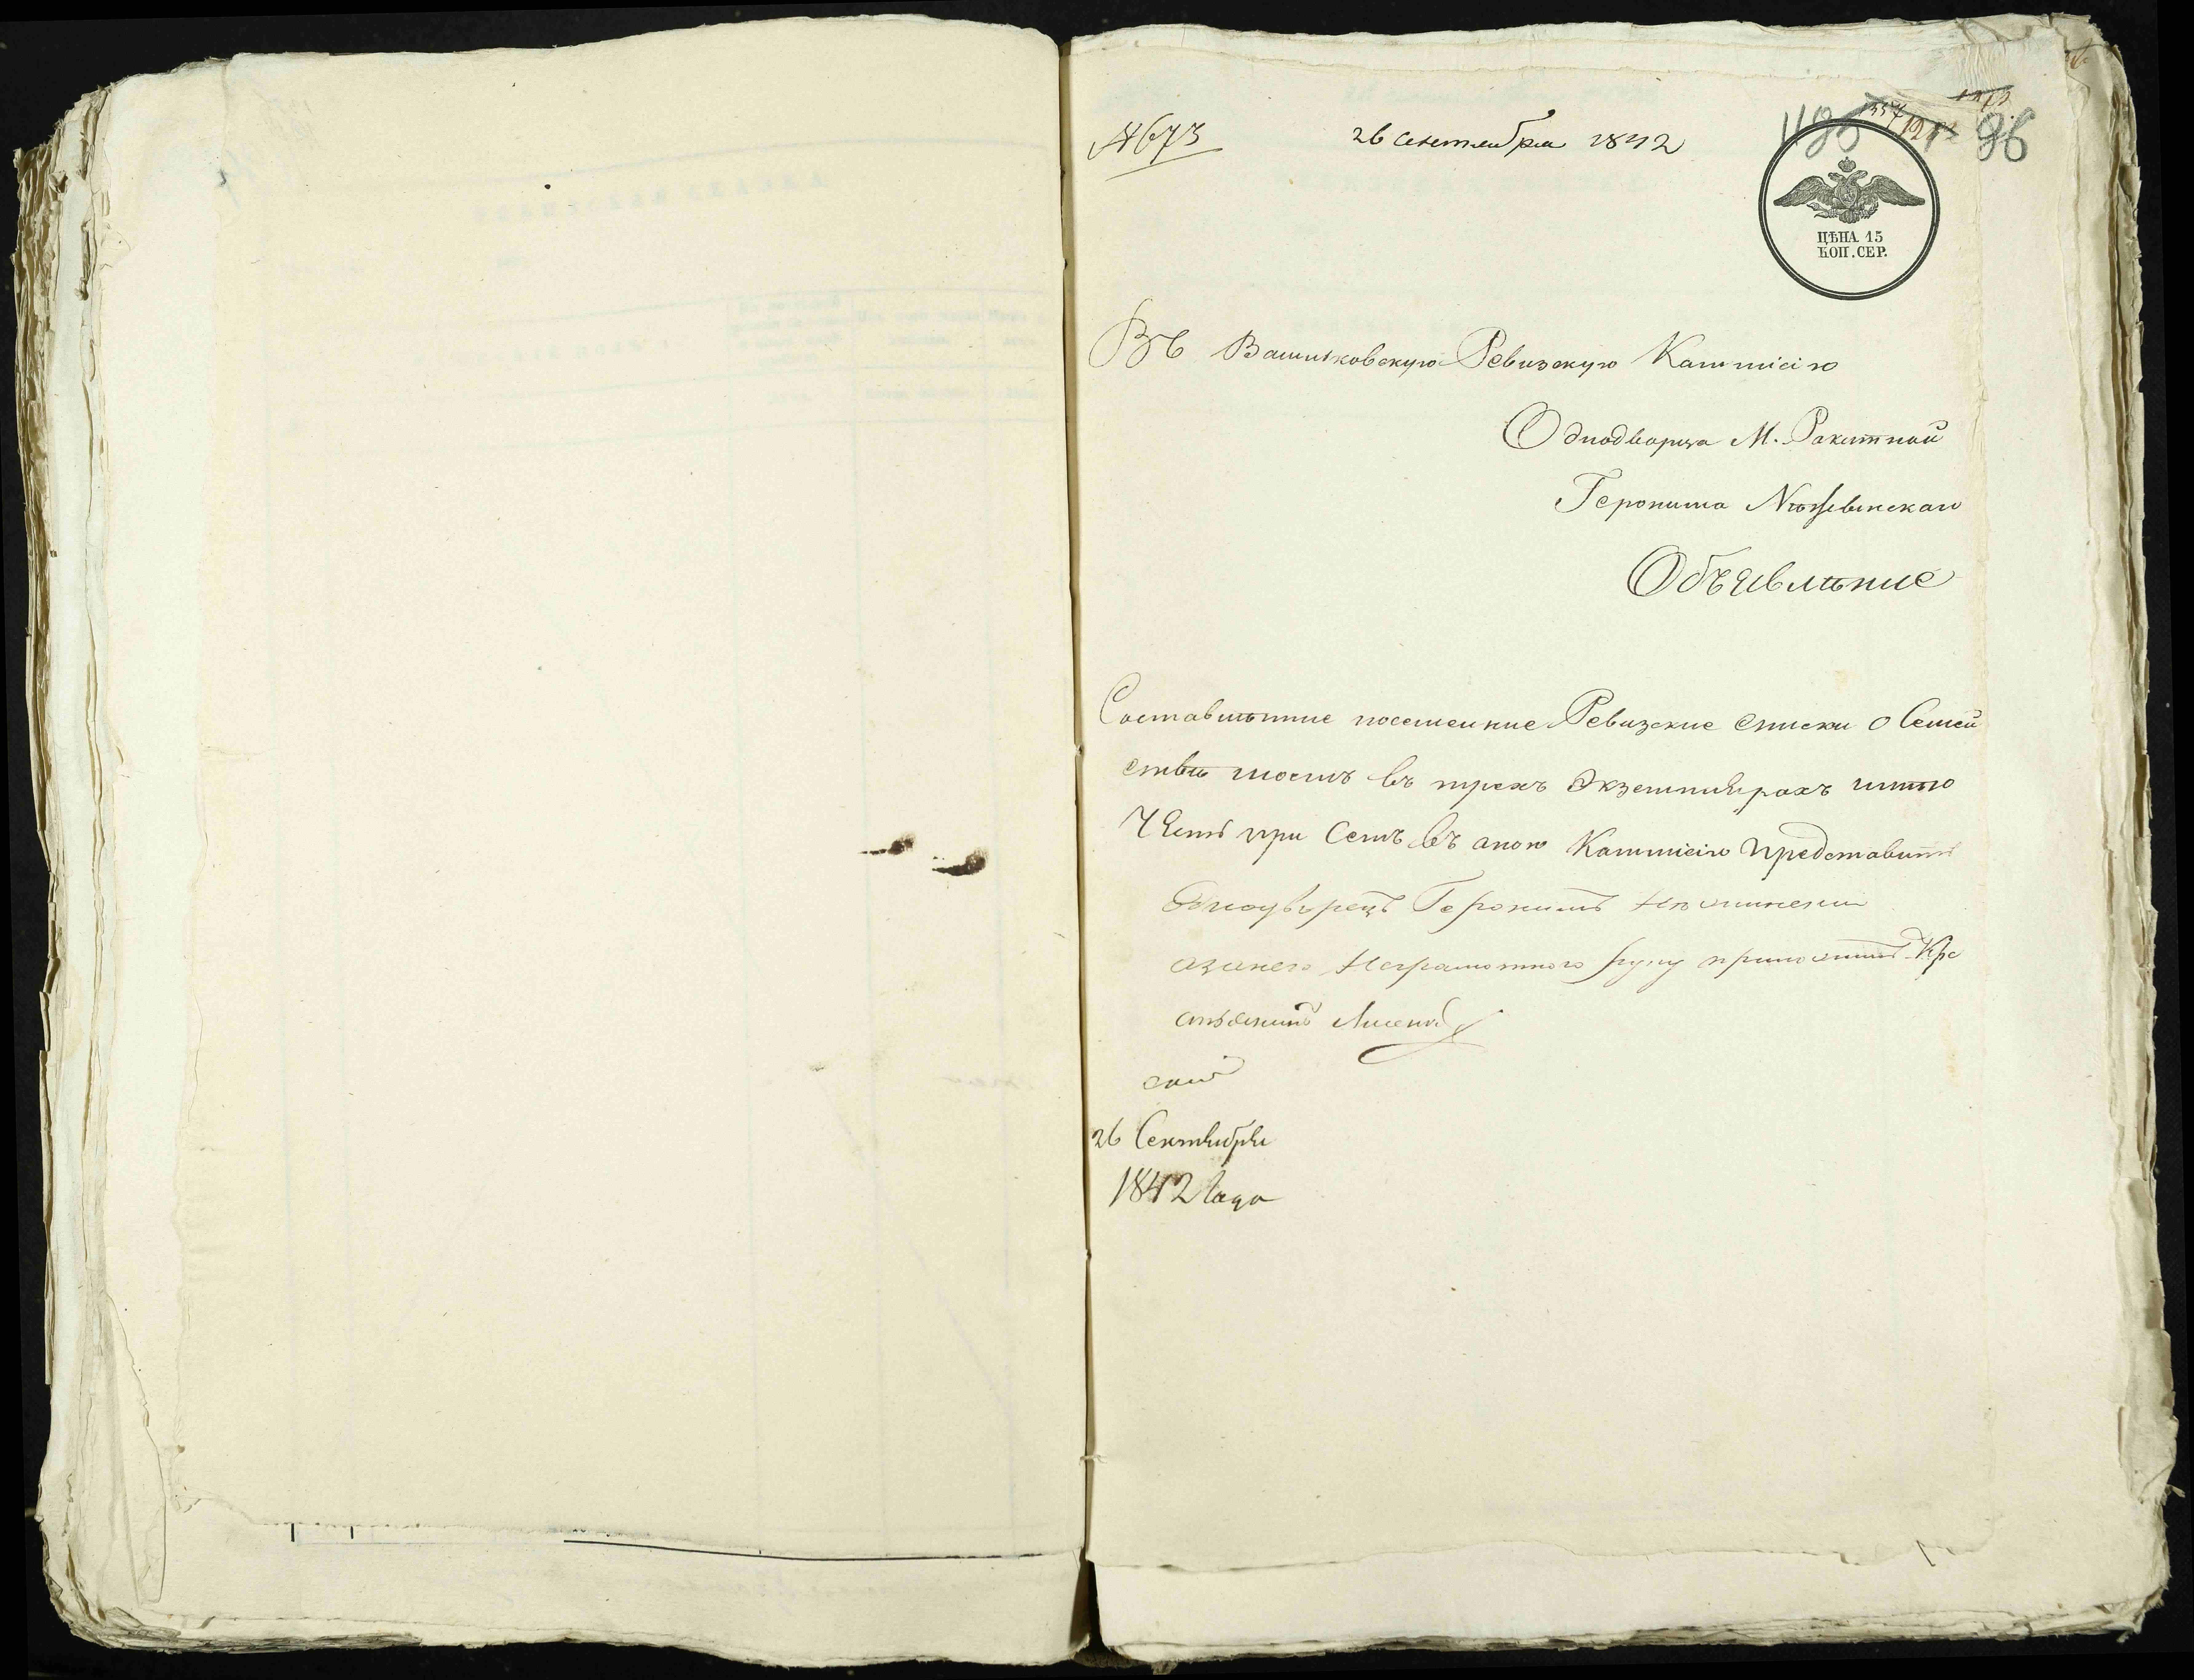 № 673 26 сентября 1842
1186 96
ЦѢНА 15
КОП. СЕР.
Въ Васильковскую Ревизскую Каммісію
Однодворца М. Ракитной
Геронима
Объявление
Составленные посемейные Ревизские списки о Семей
стве моемъ въ трехъ Экземплярахъ имею
Честь при Семъ въ аною Каммісію представить
Однодворецъ Геронимъ
а занего Неграмотного руку приложилъ
26 Сентября
1842 Года